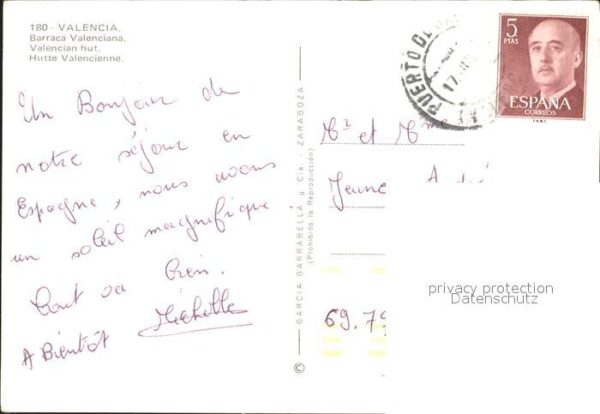 180 - VALENCIA.
Barraca Valenciana.
Valencian hut.
Hutte Valencienne.
Un Bonjour de
notre séjour en
Espagne, nous avons
un soleil magnifique
Tout va bien.
A Bientôt Michelle
GARCIA GARRABELLA y Cia. - ZARAGOZA
(Prohibida la Reproducción)
©
PUERTO DE
17
5
PTAS
ESPAÑA
CORREOS
Mr et Mme
Jeune
69.79
privacy protection
Datenschutz